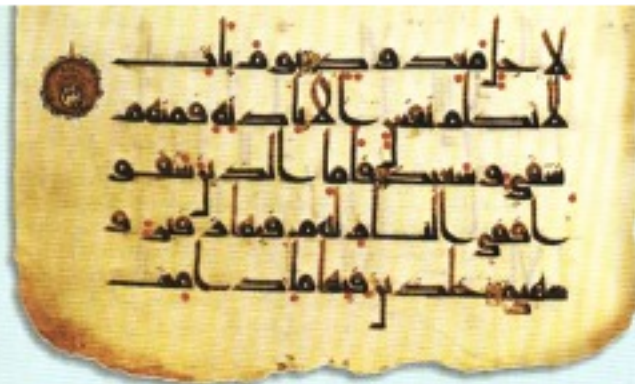 لاجل معدود يوم يات
لا تكلم نفس الا باذنه فمنهم
شقي وسعيد فاما الذين شقو
ا ففي النار لهم فيها زفير و
شهيق خلدين فيها ما دامت